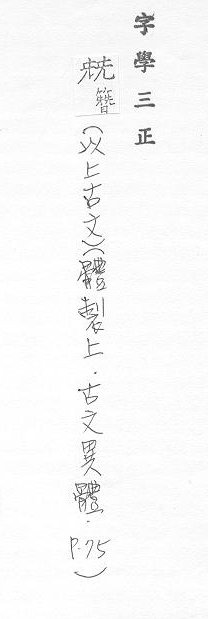 字學三正
簪(以上古文)(體製上．古文異體．P.75)